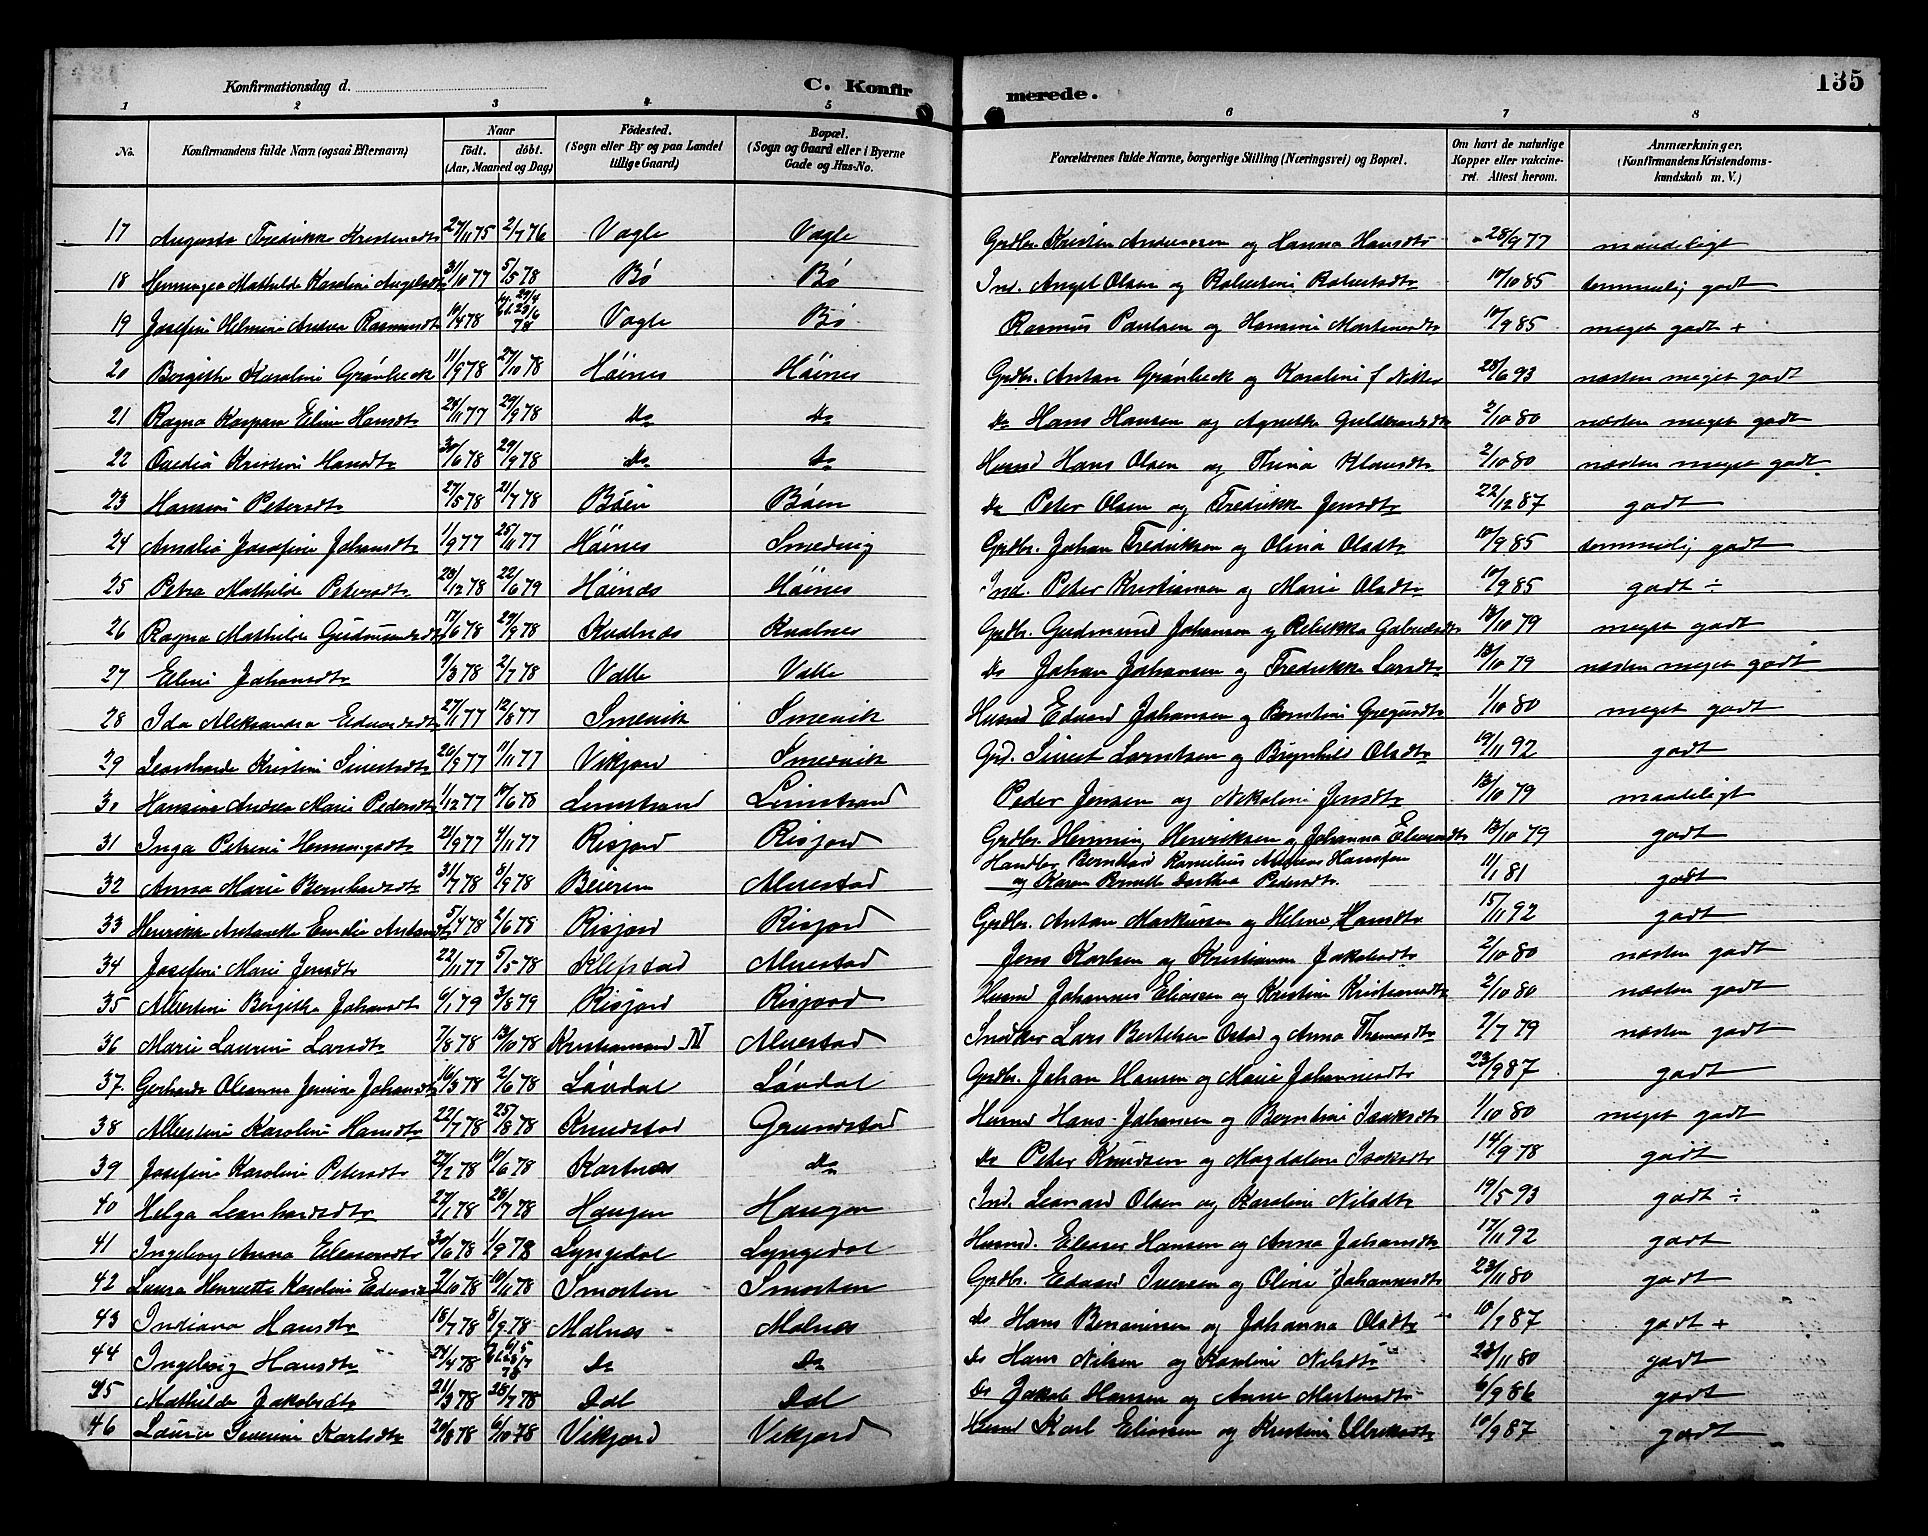 135
Konfirmationsdag d.
C. Konfirmerede.
1 2 3 4 5 6 7 8
No. Konfirmandens fulde Navn (ogsaa Efternavn) Naar Født. døbt. (Aar, Maaned og Dag) Fødested. (Sogn eller By og paa Landet tillige Gaard) Bopæl. (Sogn og Gaard eller i Byerne Gade og Hus-No. Forældrenes fulde Navne, borgerlige Stilling (Næringsvei) og Bopæl. Om havt de naturlige Kopper eller vakcineret. Attest herom. Anmærkninger. (Konfirmandens Kristendomskundskab m. V.)
17 Augusta Fredrikke Kristensdtr 27/11 75 2/7 76 Vagle Vagle Grdbr. Kristen Andreasen og Hanna Hansdtr 28/9 77 maadeligt
18 Henningea Mathilde Karolini Angelsdtr 31/10 77 5/5 78 Bø Bø Ind. Angel Olsen og Robertini Robertsdtr 10/10 85 temmelig godt
19 Josefini Helmine Andrea Rasmusdtr 10/4 78 Vagle Bø Rasmus Paulsen og Hansini Martensdtr 10/9 85 meget godt +
20 Bergitha Karolini Grønbeck 11/9 78 27/10 78 Høines Høines Grdbr. Antan Grønbeck og Karolini f 28/6 93 næsten meget godt
21 Ragna Kaspara Elini Hansdtr 24/11 77 29/9 78 Do Do Do Hans Hansen og Agnetha 2/10 80 næsten meget godt
22 Kristini Hansdtr 30/6 78 29/9 78 Do Do Husmd Hans Olsen og Trina Klausdtr 2/10 80 næsten meget godt
23 Hansini Petersdtr 27/5 78 21/7 78 Bøen Bøen Do Peter Olsen og Fredrikke Jensdtr 22/12 87 godt
24 Amalia Josefini Johansdtr 1/9 77 25/11 77 Høines Smedvig Grdbr. Johan Fredriksen og Olina Olsdtr 10/9 85 temmelig godt
25 Petra Mathilde Petersdtr 28/12 78 22/6 79 Høines Høines Ind. Peter Kristiansen og Marie Olsdtr 10/9 85 godt ÷
26 Ragna Mathilde Gudmundsdtr 17/6 78 29/9 78 Kvalnæs Kvalnes Grdbr. Gudmund Johansen og Rebekka Gabrielsdtr 13/10 79 meget godt
27 Elini Johansdtr 9/3 78 2/7 78 Valle Valle Do Johan Johansen og Fredrikke Larsdtr 13/10 79 næsten meget godt
28 Ida Aleksandra Edvardsdtr 27/1 77 12/8 77 Smevik Smevik Husmd Edvard Johansen og Berntini Gregusdtr 1/10 80 meget godt
29 Leonharde Kristini Sivertsdtr 26/9 77 11/11 77 Vikjord Smedvik Grd. Sivert Lorntsen og Brynhild Olsdtr 19/11 92 godt
30 Hansina Andrea Marie Pedersdtr 1/12 77 10/6 78 Limstrand Limstrand Peder Jensen og Nikolini Jensdtr 13/10 79 maadeligt
31 Inga Petrini Henningsdtr 21/9 77 4/11 77 Risjord Risjord Grdbr. Henning Henriksen og Johanna Eliasdtr 13/10 79 godt
32 Anna Marie Bernhardsdtr 31/7 78 8/9 78 Beieren Alvestad Handler Bernhard Kornelius Hansen og Karen Dorthea Pedersdtr. 11/1 81 godt
33 Henrikke Antanetta Emilie Antansdtr 5/4 78 2/6 78 Risjord Risjord Grdbr. Antan Markussen og Helene Hansdtr 15/11 92 godt
34 Josefini Marie Jensdtr 22/11 77 5/5 78 Klepstad Alvestad Jens Karlsen og Kristianna Jakobsdtr 2/10 80 næsten godt
35 Albertini Bergitha Johansdtr 6/1 79 3/8 79 Risjord Risjord Husmd Johannes Eliassen og Kristini Kristiansdtr 2/10 80 næsten godt
36 Marie Laurini Larsdtr 7/8 78 13/10 78 Kristiansund N Alvestad Snedker Lars Bertelsen og Anna Thomasdtr 2/7 79 næsten godt
37. Gerharde Oleanna Jensine Johansdtr 16/3 78 2/6 78 Løvdal Løvdal Grdbr. Johan Hansen og Marie Johannesdtr 23/9 87 godt
38 Albertini Karolini Hansdtr 22/7 78 25/8 78 Knudstad Grundstad Husmd Hans Johansen og Berntini Isaksdtr 1/10 80 meget godt
39 Josefini Karolini Petersdtr 22/2 78 10/6 78 Kartnæs Do Do Peter Knudsen og Magdalena Isaksdtr 14/9 78 godt
40 Helga Leonhardsdtr 27/1 78 28/7 78 Haugen Haugen Ind. Leonard Olsen og Karolini Nilsdtr 19/5 93 godt ÷
41 Ingeborg Anna Eleasersdtr 30/6 78 1/9 78 Lyngedal Lyngedal Husmd. Eleaser Hansen og Anna Johansdtr 17/11 92 godt
42 Laura Henriette Karolini Edvardsdtr 2/10 78 10/11 78 Smorten Smorten Grdbr. Edvard Iversen og Olini Johannesdtr 23/11 80 godt
43 Indiana Hansdtr 18/7 78 8/9 78 Malnæs Malnæs Do Hans Benonisen og Johanna Olsdtr 10/9 87 godt +
44 Ingeborg Hansdtr 24/4 78 Do Do Do Hans Nilsen og Karolini Nilsdtr 23/11 80 godt
45 Mathilde Jakobsdtr 21/3 78 28/7 78 Dal Dal Do Jakob Hansen og Anne Martensdtr 6/9 86 godt
46 Laura Severini Karlsdtr 20/8 78 6/10 78 Vikjord Vikjord Husmd Karl Eliassen og Kristini Ulriksdtr 10/9 87 godt